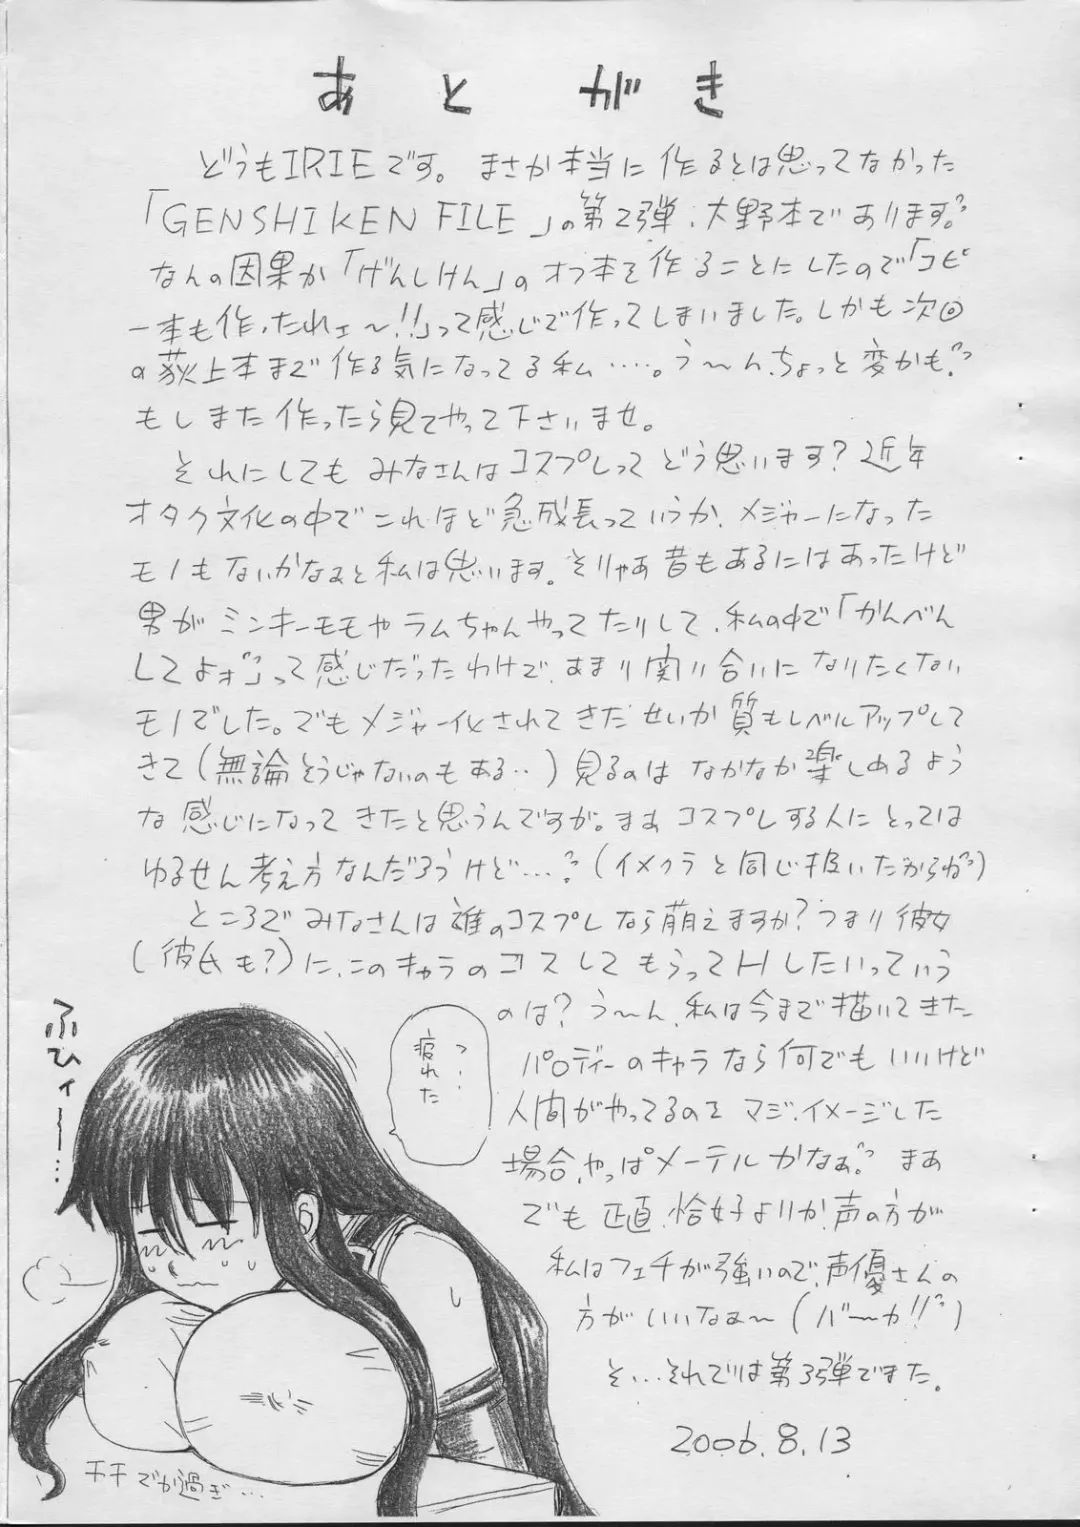 あとがき
どうもIRIEです。まさか本当に作るとは思ってなかった
「GENSHIKEN FILE」の第2弾、大野本であります。
なんの因果か「げんしけん」のオフ本を作ることにしたので「コピ
ー本も作ったれェ〜!!」って感じで作ってしまいました。しかも次回
の荻上本まで作る気になってる私……。う〜ん、ちょっと変かも。
もしまた作ったら見てやって下さいませ。
それにしてもみなさんはコスプレってどう思います?近年
オタク文化の中でこれほど急成長っていうか、メジャーになった
モノもないかなぁと私は思います。そりゃあ昔もあるにはあったけど
男がミンキーモモやラムちゃんやってたりして、私の中で「かんべん
してよォ」って感じだったわけで、あまり関り合いになりたくない
モノでした。でもメジャー化されてきたせいか質もレベルアップして
きて(無論そうじゃないのもある‥)見るのはなかなか楽しめるよう
な感じになってきたと思うんですが。まぁコスプレする人にとっては
ゆるせん考え方なんだろうけど…。(イメクラと同じ扱いだからね)
ところでみなさんは誰のコスプレなら萌えますか?つまり彼女
(彼氏も?)に、このキャラのコスしてもらってHしたいっていう
のは?う〜ん、私は今まで描いてきた
パロディーのキャラなら何でもいいけど
人間がやってるのをマジ、イメージした
場合、やっぱメーテルかなぁ。まあ
でも正直、恰好よりか声の方が
私はフェチが強いので、声優さんの
方がいいなぁ〜(バーカ!!)
そ…それでは第3弾でまた。
2006.8.13
ふひィー…
つ…
疲れた
チチでか過ぎ…